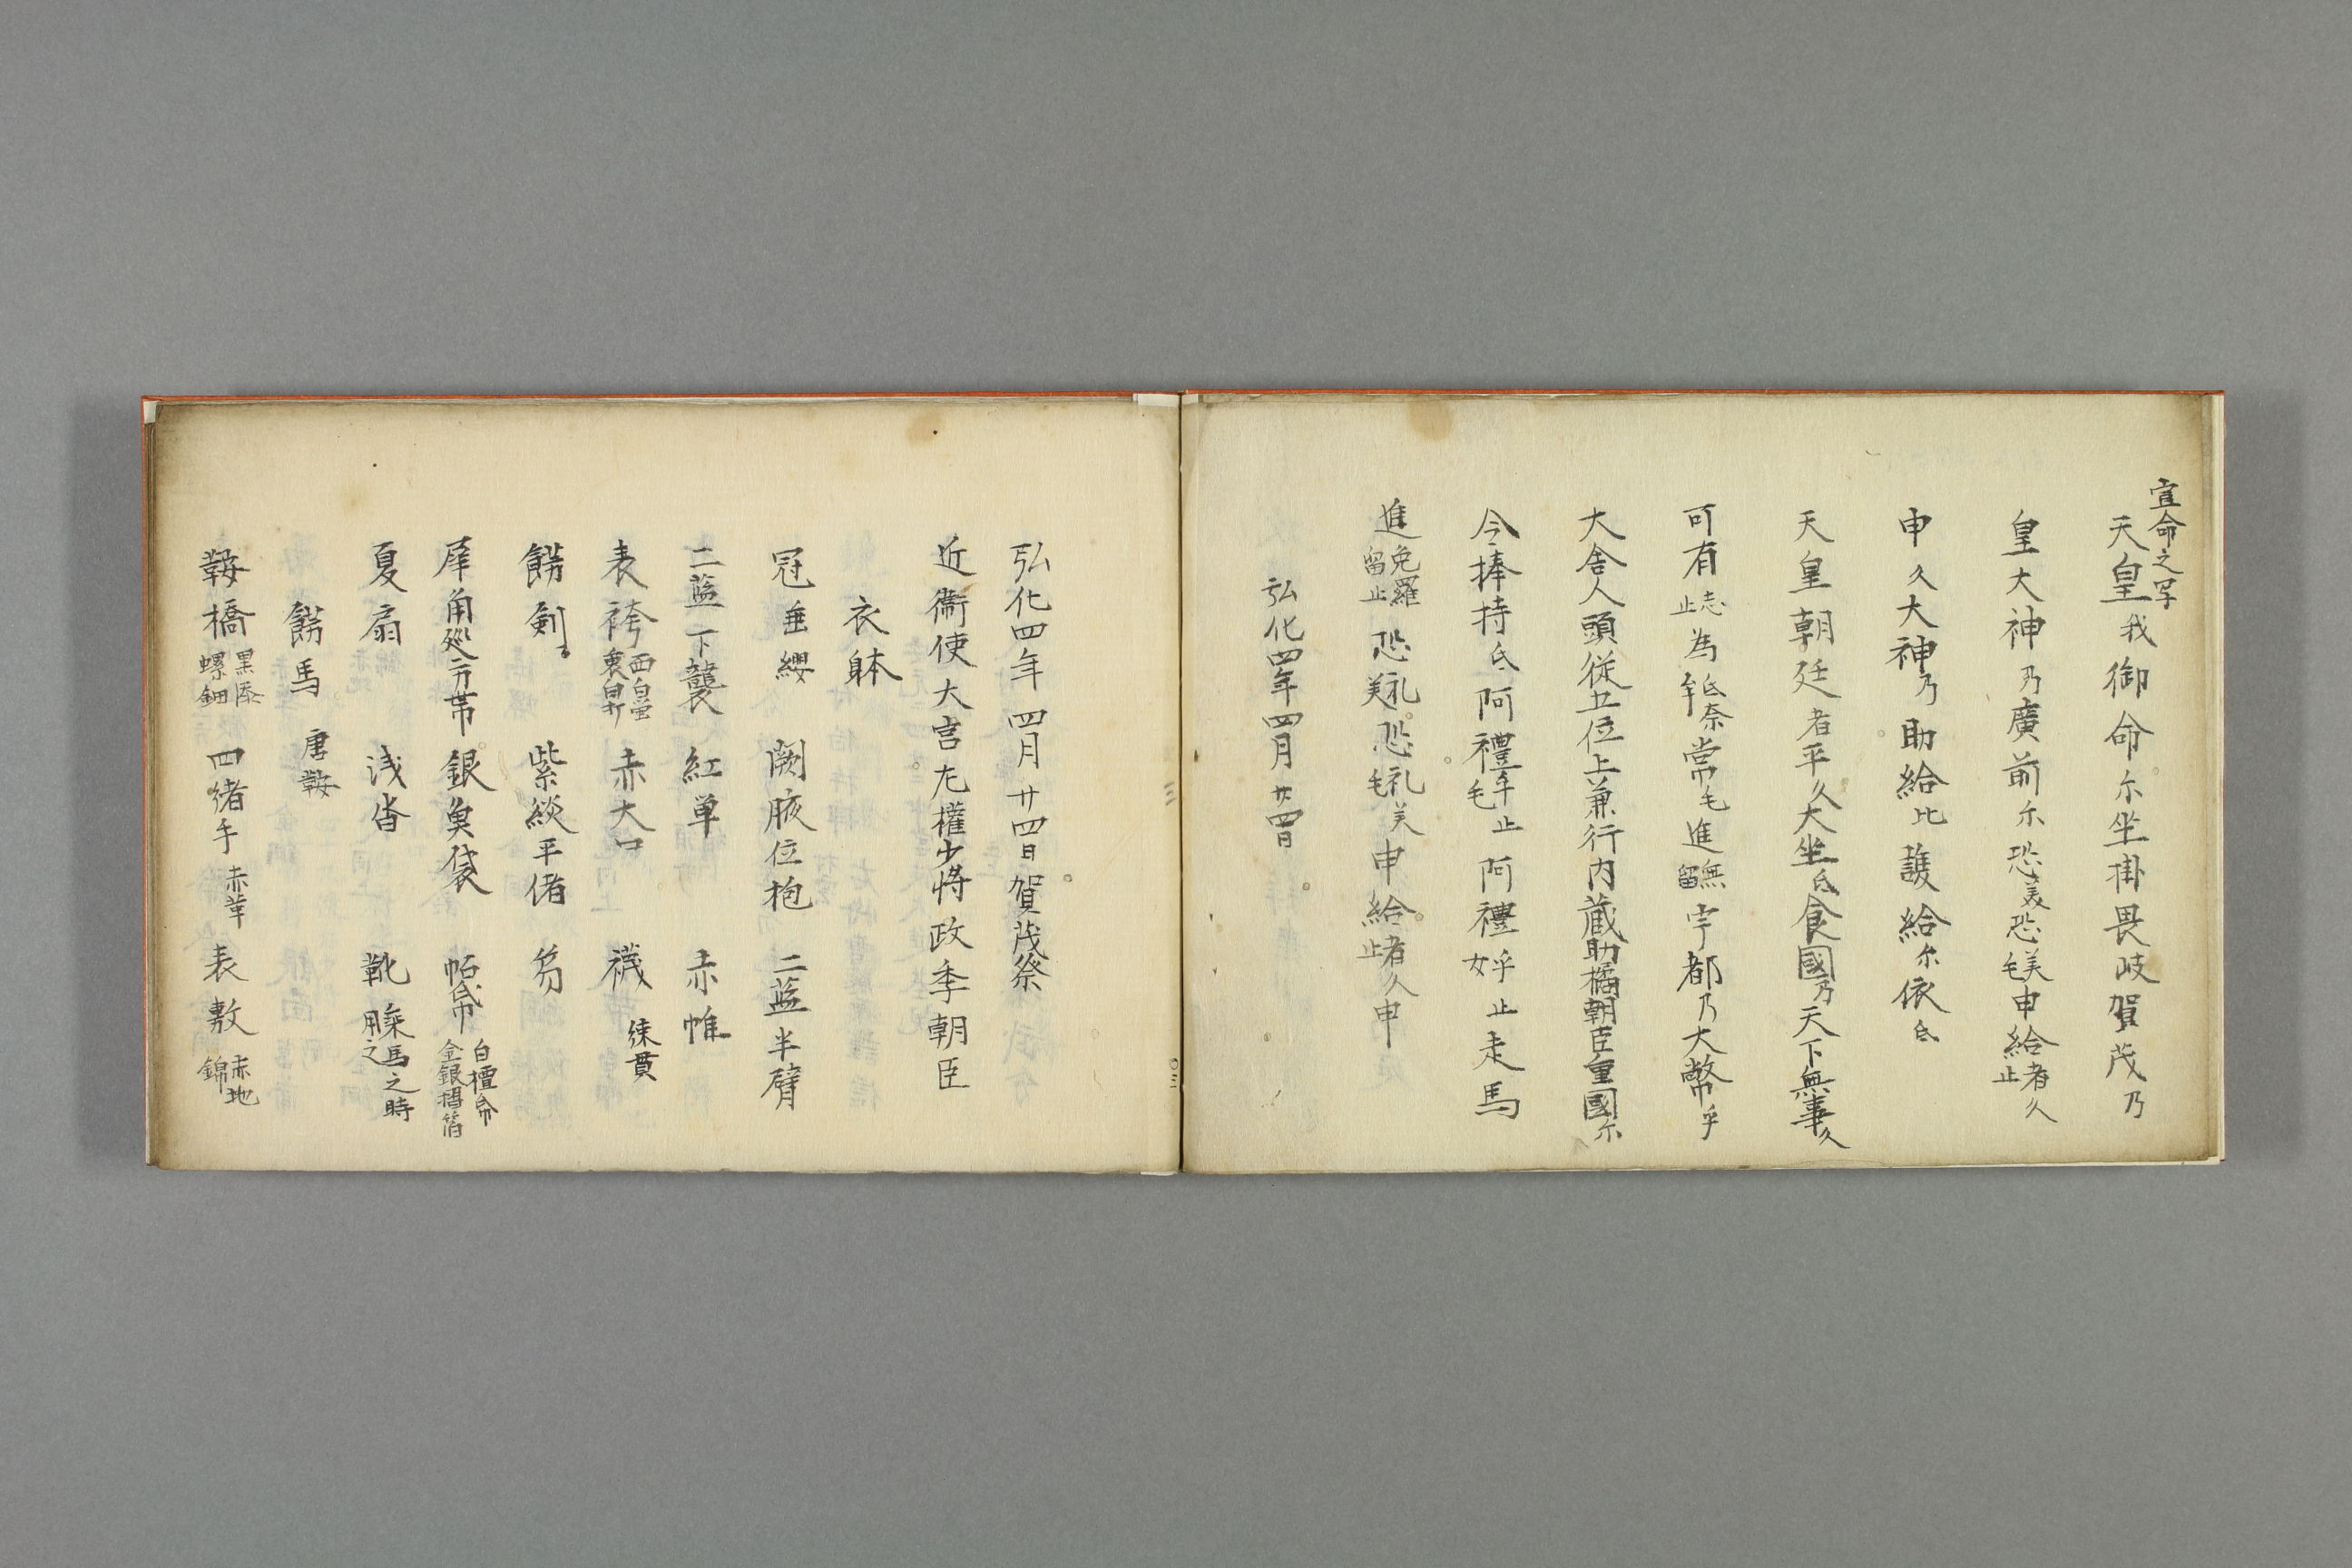 宣命之写
天皇我御命尓坐掛畏岐賀茂乃
皇大神乃廣前尓恐美恐美毛申給者久止
申久大神乃助給比護給尓依氐
天皇朝廷者平久大坐氐食國乃天下無事久
可有志止為氐奈牟常毛進無留宇都乃大幣乎
大舎人頭従五位上兼行内蔵助橘朝臣重國尓
今捧持氐阿禮牟止毛阿禮乎止女走馬
進免羅留止恐礼美恐礼美毛申給者久止申
弘化四年四月廿四日
弘化四年四月廿四日賀茂祭
近衛使大宮左權少将政季朝臣
衣躰
冠垂纓　闕腋位袍　二藍半臂
二藍下襲　紅単　赤帷
表袴　赤大口　襪練貫
餝剣　紫綾平緒　笏
犀角巡方帯　銀魚袋　帖帋白檀帋金銀摺箔
夏扇　浅沓　靴乗馬之時用之
餝馬　唐鞍
鞍橋黒漆螺鈿　四緒手赤革　表敷赤地錦